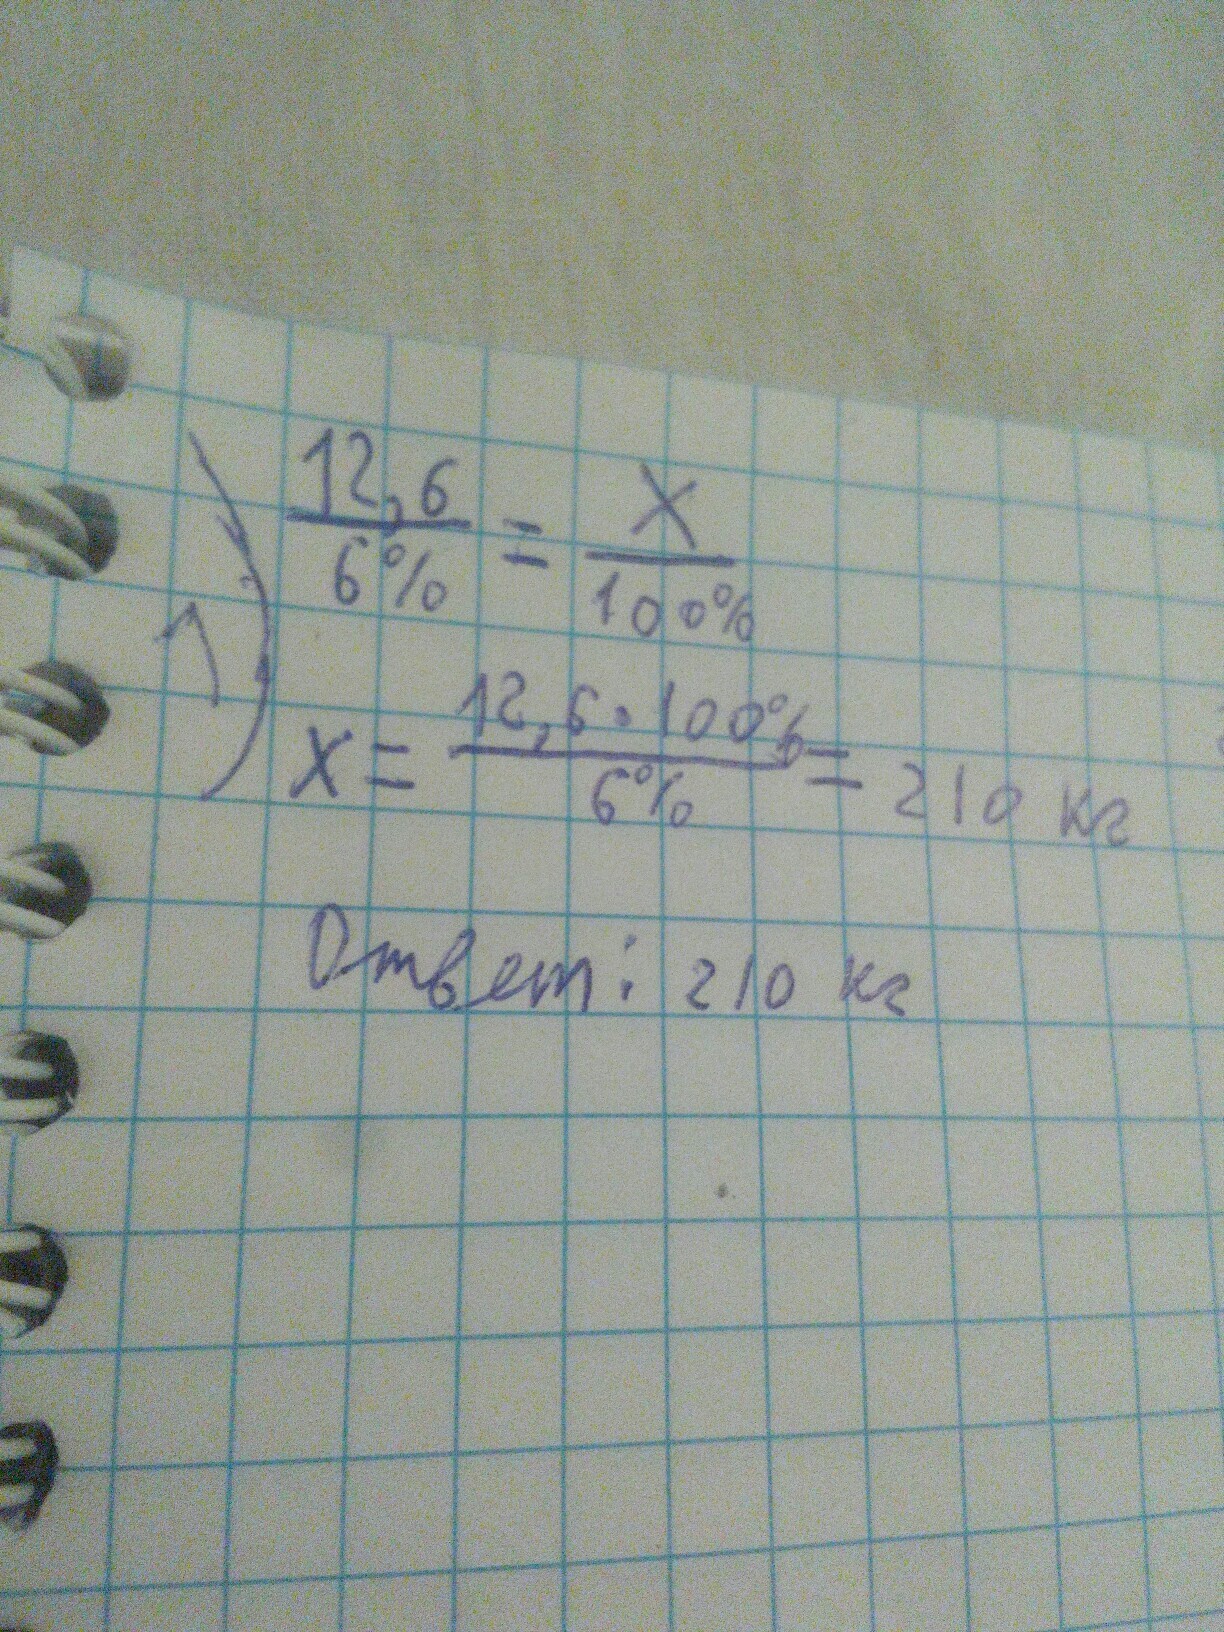 12,6 / 6% = X / 100%
X = 12,6 · 100% / 6% = 210 кг
Ответ: 210 кг